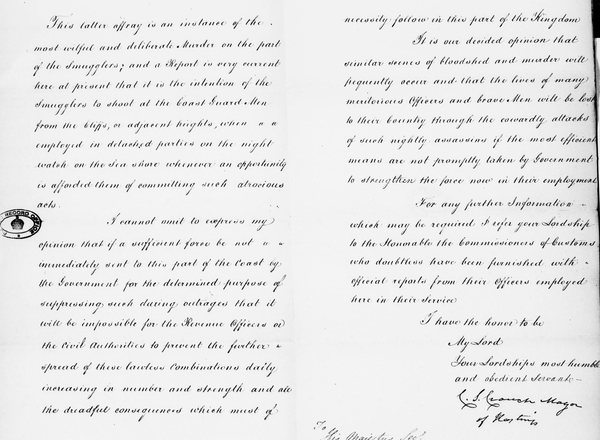 This latter affray is an instance of the
most wilful and deliberate Murder on the part
of the Smugglers; and a Report is very current
here at present that it is the intention of the
Smugglers to shoot at the Coast Guard Men
from the Cliffs, or adjacent heights, when
employed in detached parties on the night
watch on the Sea shore whenever an opportunity
is afforded them of committing such atrocious
acts.
I cannot omit to express my
opinion that if a sufficient force be not
immediately sent to this part of the Coast by
the Government for the determined purpose of
suppressing such daring outrages that it
will be impossible for the Revenue Officers or
the Civil Authorities to prevent the further
spread of these lawless Combinations daily
increasing in number and strength and all
the dreadful consequences which must of
RECORD OFFICE
necessity follow in this part of the Kingdom
It is our decided opinion that
similar scenes of bloodshed and murder will
frequently occur and that the lives of many
meritorious Officers and brave Men will be lost
to their Country through the cowardly attacks
of such nightly assassins if the most efficient
means are not promptly taken by Government
to strengthen the force now in their employment
For any further Information
which may be required I refer your Lordship
to the Honorable the Commissioners of Customs
who doubtless have been furnished with
official reports from their Officers employed
here in their Service
I have the honor to be
My Lord
Your Lordships most humble
and obedient Servant
Mayor
of Hastings
To
His Majestys